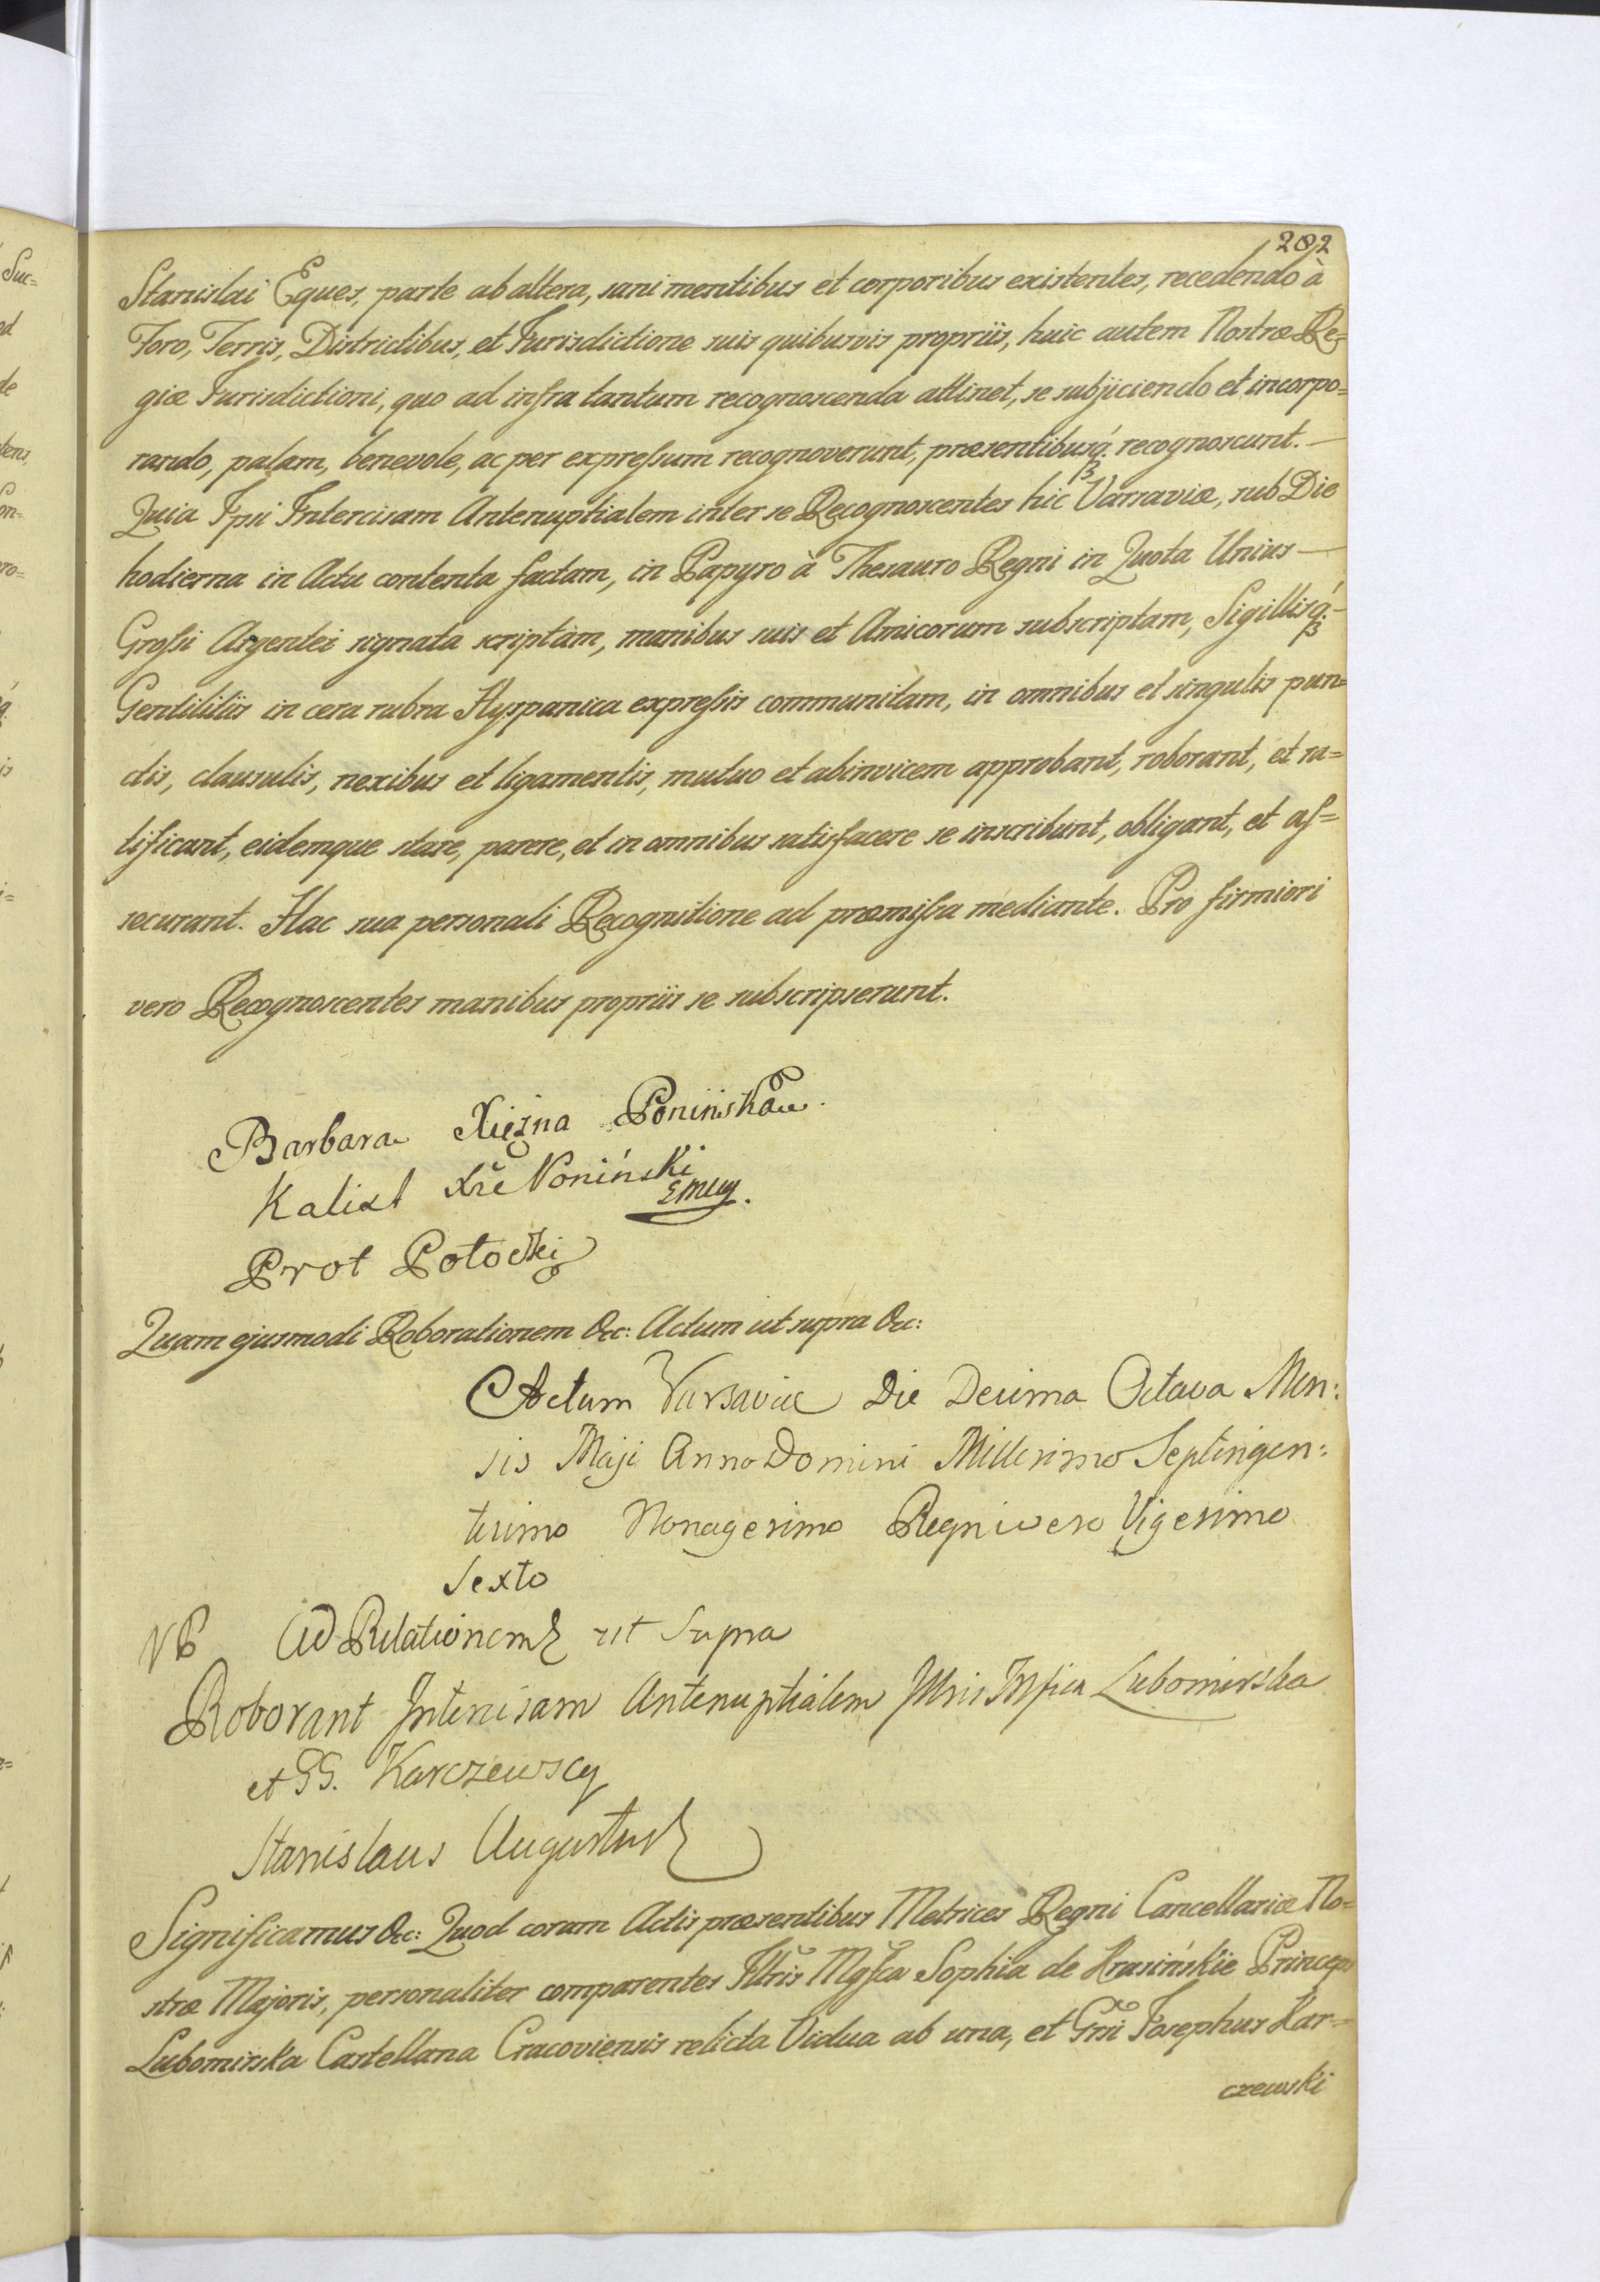 202
Stanislai Eques, parte ab altera, sani mentibus et corporibus existentes, recedendo à
Foro, Terris, Districtibus, et Jurisdictione suis quibusvis propriis, huic autem Nostræ Re=
giæ Jurisdictioni, quo ad infra tantum recognoscenda attinet, se subjiciendo et incorpo=
rando, palam, benevole, ac per expreſsum recognoverunt, præsentibusq́ recognoscunt.—
Quia Ipsi Intercisam Antenuptialem inter se Recognoscentes hic Varsaviæ, sub Die
hodierna in Actu contenta factam, in Papyro à Thesauro Regni in Quota Unius—
Groſsi Argentei signata scriptam, manibus suis et Amicorum subscriptam, Sigillisq́—
Gentilitiis in cera rubra Hyspanica expreſsis communitam, in omnibus et singulis pun=
ctis, clausulis, nexibus et ligamentis, mutuo et abinvicem approbant, roborant, et ra=
tificant, eidemque stare, parere, et in omnibus satisfacere se inscribunt, obligant, et aſ=
securant. Hac sua personali Recognitione ad præmiſsa mediante. Pro firmiori
vero Recognoscentes manibus propriis se subscripserunt.
Barbara Xiężna Ponińska
Kalixt Xże Poniński
Prot Potocki
Quam ejusmodi Roborationem &c: Actum ut supra &c:
Actum Varsaviæ Die Decima Octava Men:
sis Maji Anno Domini Millesimo Septingen:
tesimo Nonagesimo Regni vero Vigesimo
Sexto
Ad Relationem ut Supra
Roborant Intercisam Antenuptialem Lubomirska
et GG. Karczewscy
Stanislaus Augustus
Significamus &c: Quod coram Actis præsentibus Metrices Regni Cancellariæ No=
stræ Majoris, personaliter comparentes Illris Mgfca Sophia de Krasińskie Princeps
Lubomirska Castellana Cracoviensis relicta Vidua ab una, et Gnsi Josephus Kar=
czewski